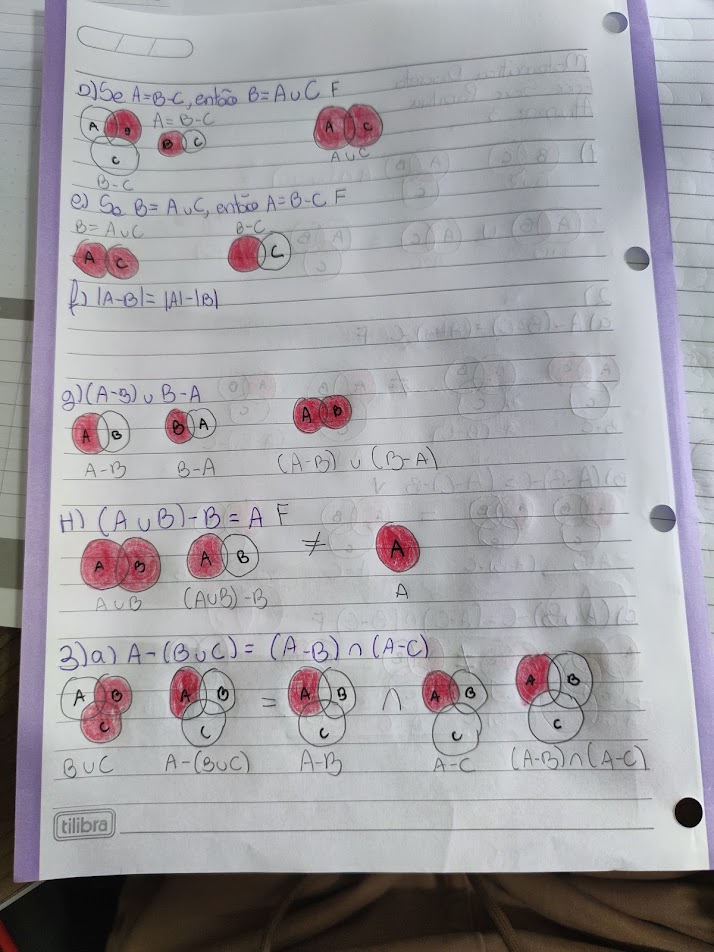 D) Se A=B-C, então B=A∪C F
A B A=B-C
B C
A C
C
A∪C
B-C
e) Se B=A∪C, então A=B-C F
B=A∪C B-C
A C C
f) |A-B|=|A|-|B|
g) (A-B)∪B-A
A B B A A B
A-B B-A (A-B) ∪ (B-A)
H) (A∪B)-B=A F
A B A B ≠ A
A∪B (A∪B)-B A
3) a) A-(B∪C)=(A-B)∩(A-C)
A B A B = A B ∩ A B A B
C C C C C
B∪C A-(B∪C) A-B A-C (A-B)∩(A-C)
tilibra